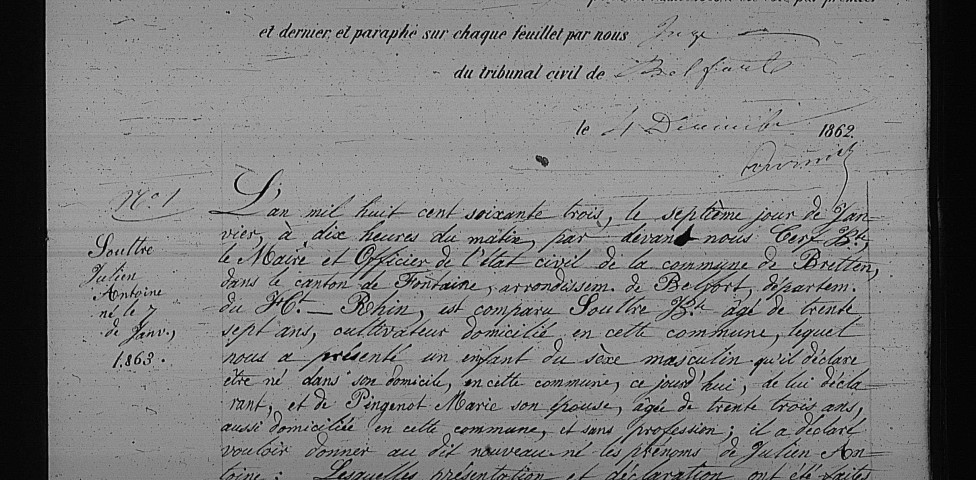 et dernier, et paraphé sur chaque feuillet par nous Juge
du tribunal civil de Belfort
le 4 Décembre 1862.
No 1
Soultre
Julien
Antoine
né le 7
de Janv.,
1863.
L'an mil huit cent soixante trois, le septième jour de Jan-
vier, à dix heures du matin, par devant nous Cerf Bte
le Maire et Officier de l'état civil de la commune de Bretten,
dans le canton de Fontaine, arrondissem. de Belfort, départem.
du Ht. — Rhin, est comparu Soultre Bte âgé de trente
sept ans, cultivateur domicilié en cette commune, lequel
nous a présenté un enfant du sèxe masculin qu'il déclare
être né dans son domicile, en cette commune, ce jourd'hui, de lui décla-
rant, et de Pingenot Marie son épouse, âgée de trente trois ans,
aussi domiciliée en cette commune, et sans profession; il a déclaré
vouloir donner au dit nouveau-né les prénoms de Julien An-
toine: Lesquelles présentation et déclaration ont été faites